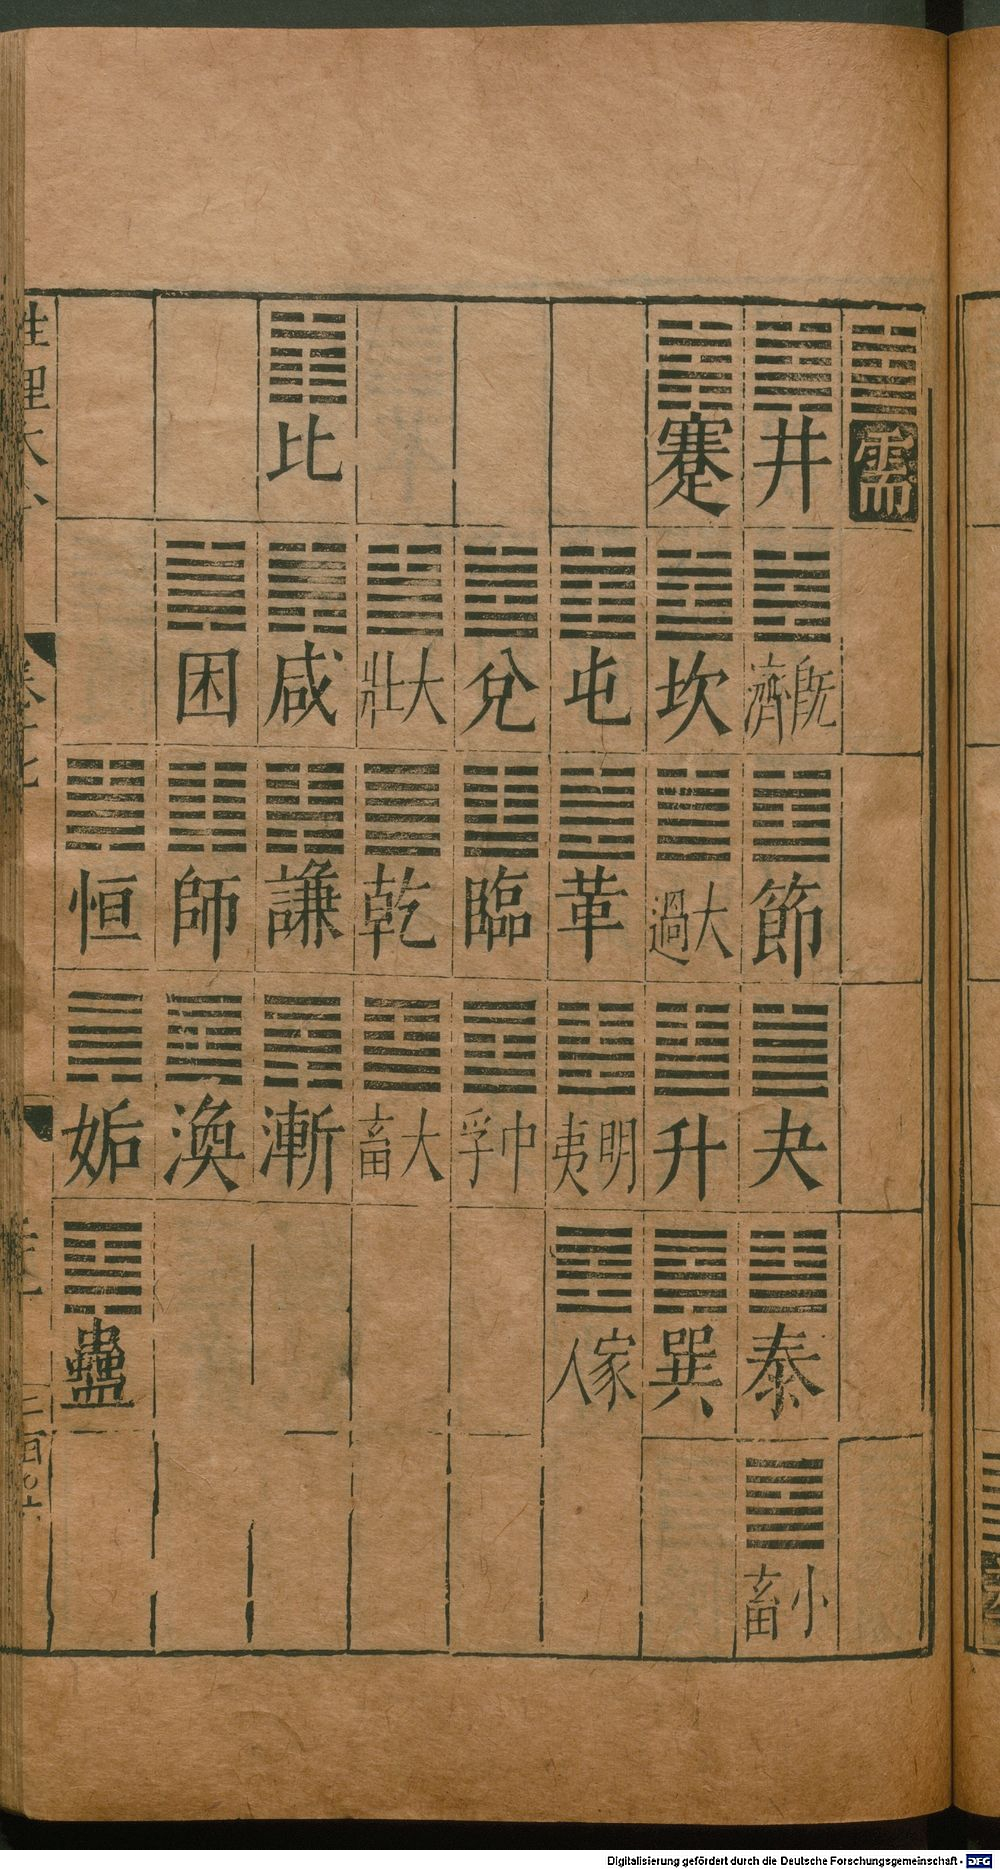 需
井 既濟 節 夬 泰 小畜
蹇 坎 大過 升 巽
屯 革 明夷 家人
兌 臨 中孚
大壯 乾 大畜
比 咸 謙 漸
困 師 渙
恒 姤 蠱
性理大全
Digitalisierung gefördert durch die Deutsche Forschungsgemeinschaft - DFG